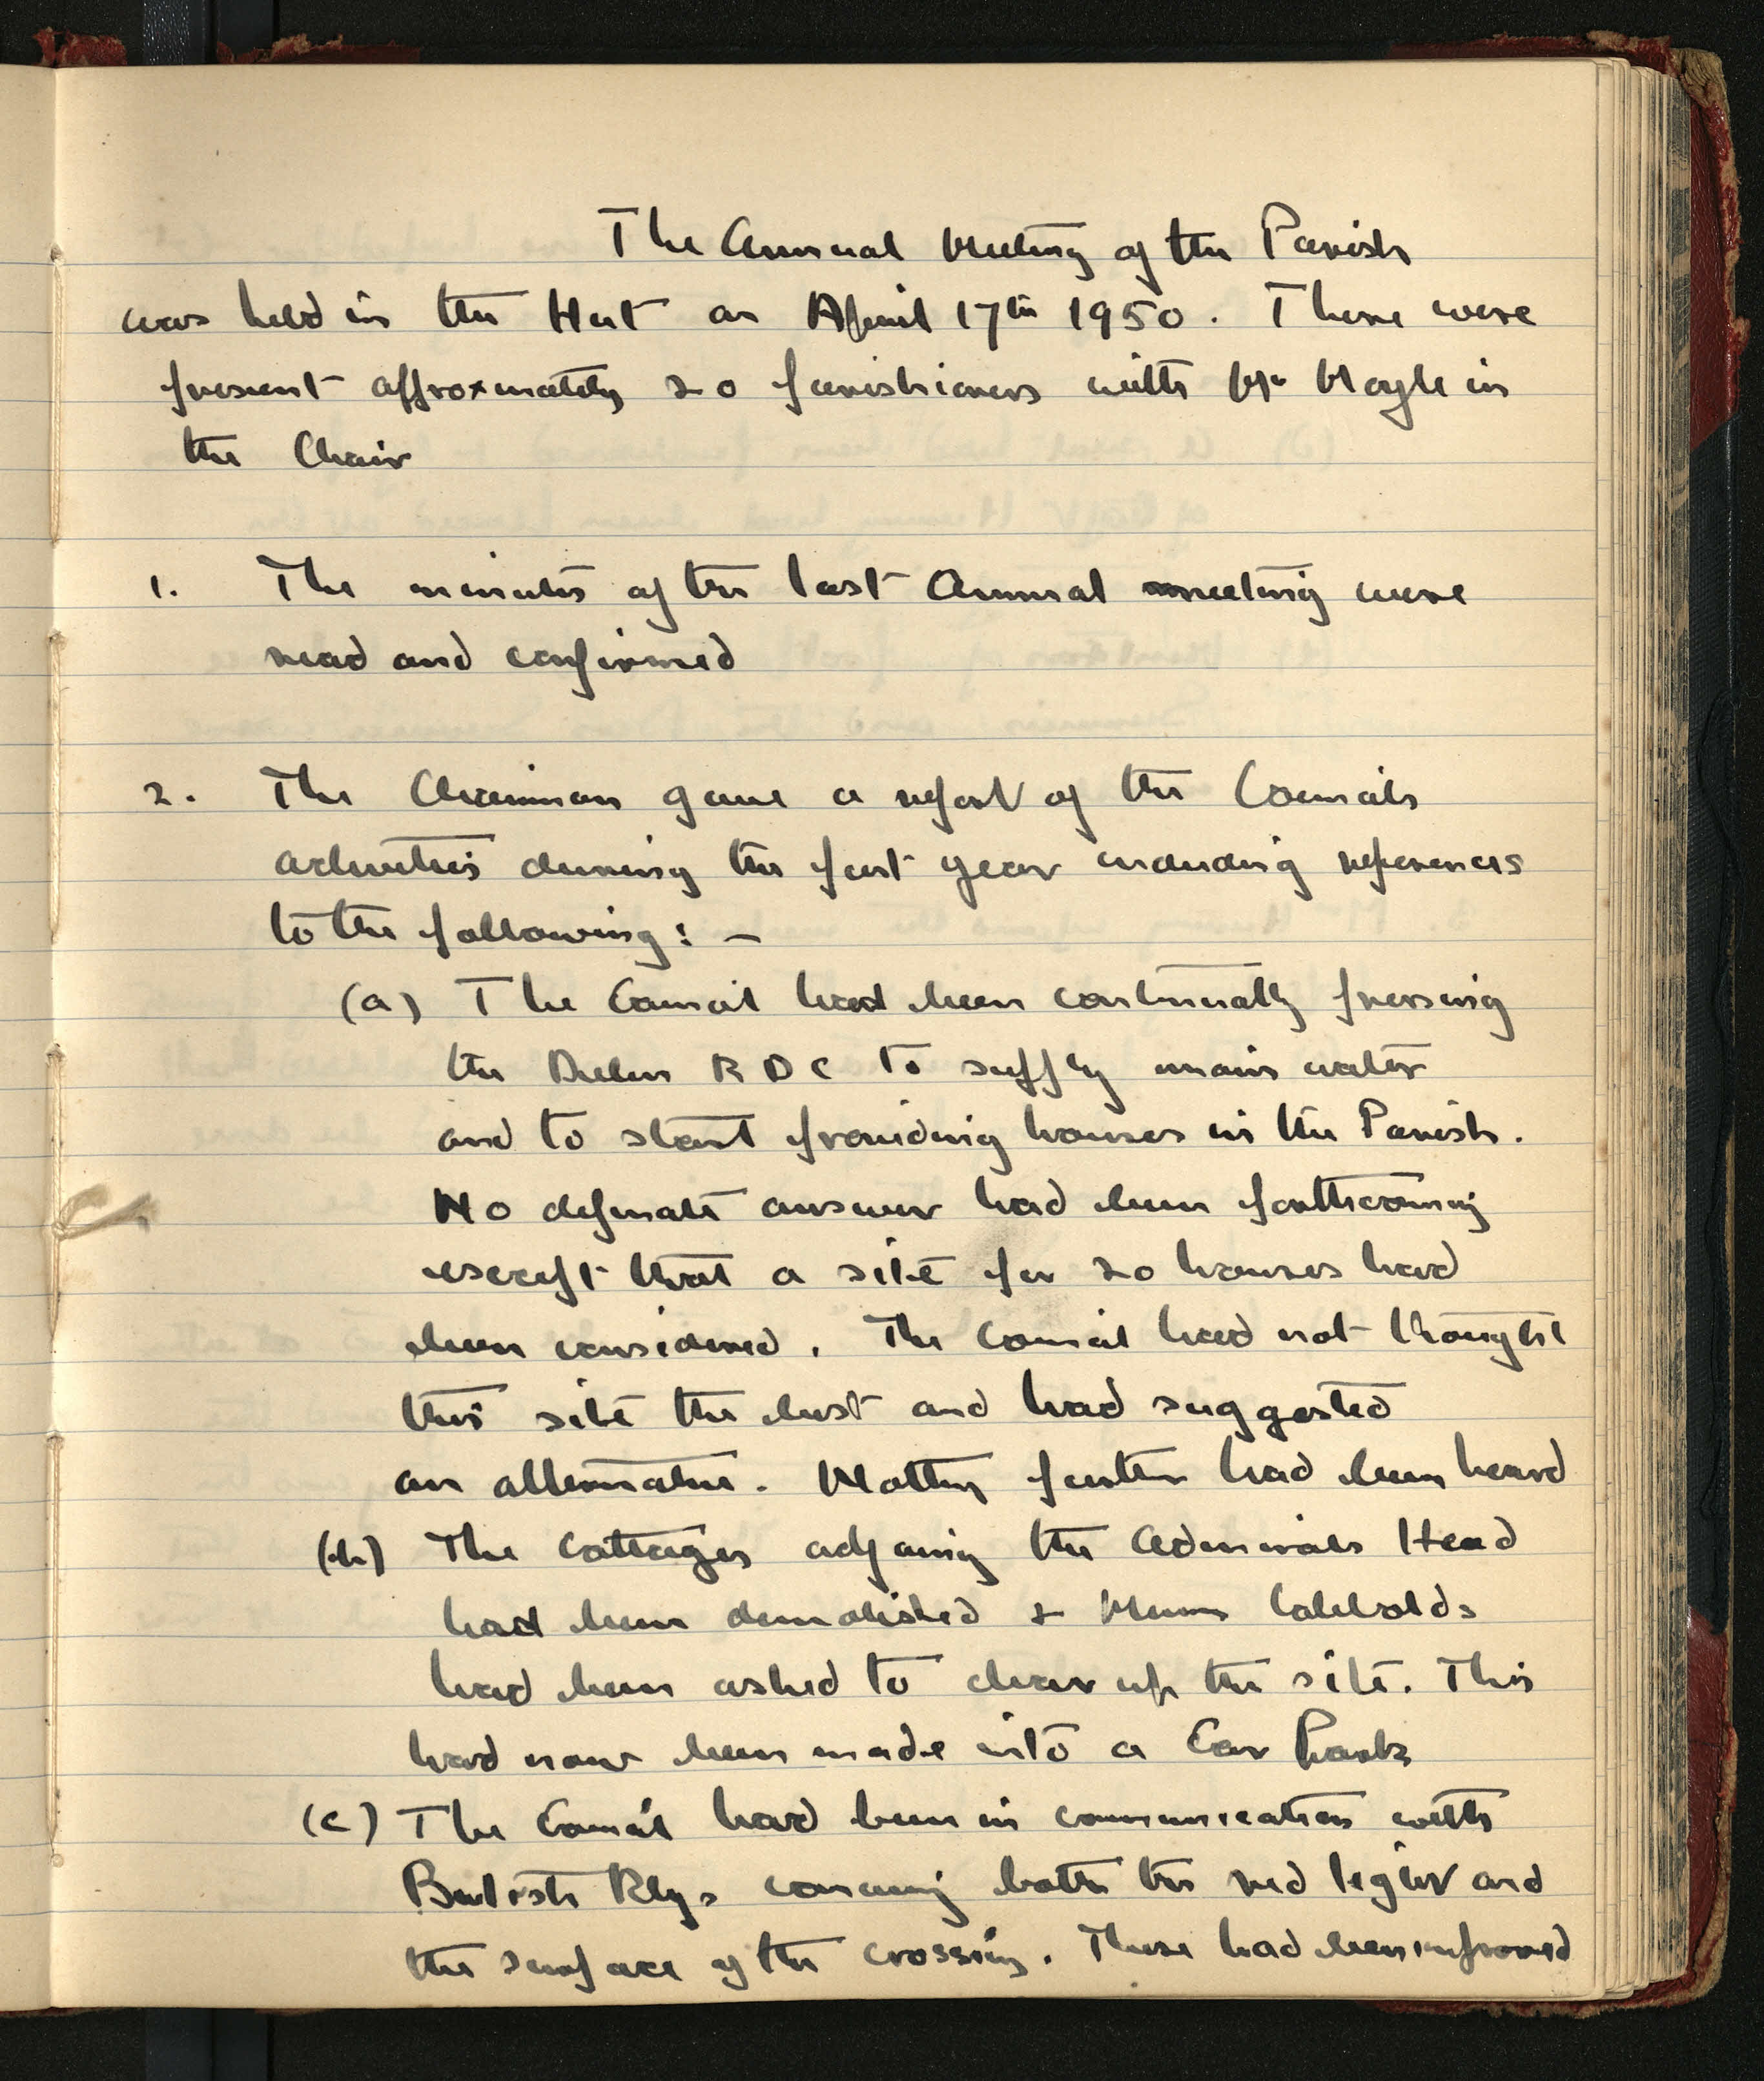 The Annual Meeting of the Parish
was held in the Hut on April 17th 1950. There were
present approxmately 20 parishioners with Mr Mayle in
the Chair
1. The minutes of the last Annual meeting were
read and confirmed
2. The Chairman gave a report of the Councils
activities during the past year including references
to the following: —
(a) The Council had been continually pressing
the Deben R D C to supply main water
and to start providing houses in the Parish.
No definate answer had been forthcoming
except that a site for 20 houses had
been considered. The Council had not thought
this site the best and had suggested
an alternative. Nothing further had been heard
(b) The Cottages adjoining the Admirals Head
had been demolished & Messrs Cobbolds
had been asked to clear up the site. This
had now been made into a Car Park
(c) The Council had been in communication with
British Rlys concerning both the red light and
the surface of the crossing. These had been improved